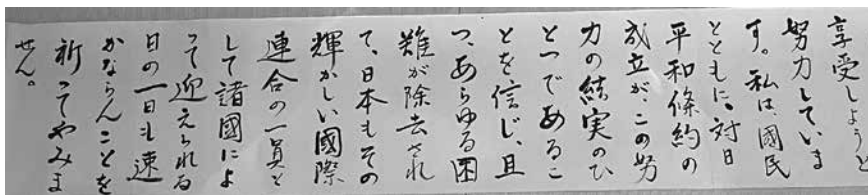 享受しようと
努力していま
す。私は、國民
とともに、対日
平和條約の
成立が、この努
力の結実のひ
とつであるこ
とを信じ、且
つ、あらゆる困
難が除去され
て、日本もその
輝かしい國際
連合の一員と
して諸國によ
って迎えられる
日の一日も速
かならんことを
祈ってやみま
せん。